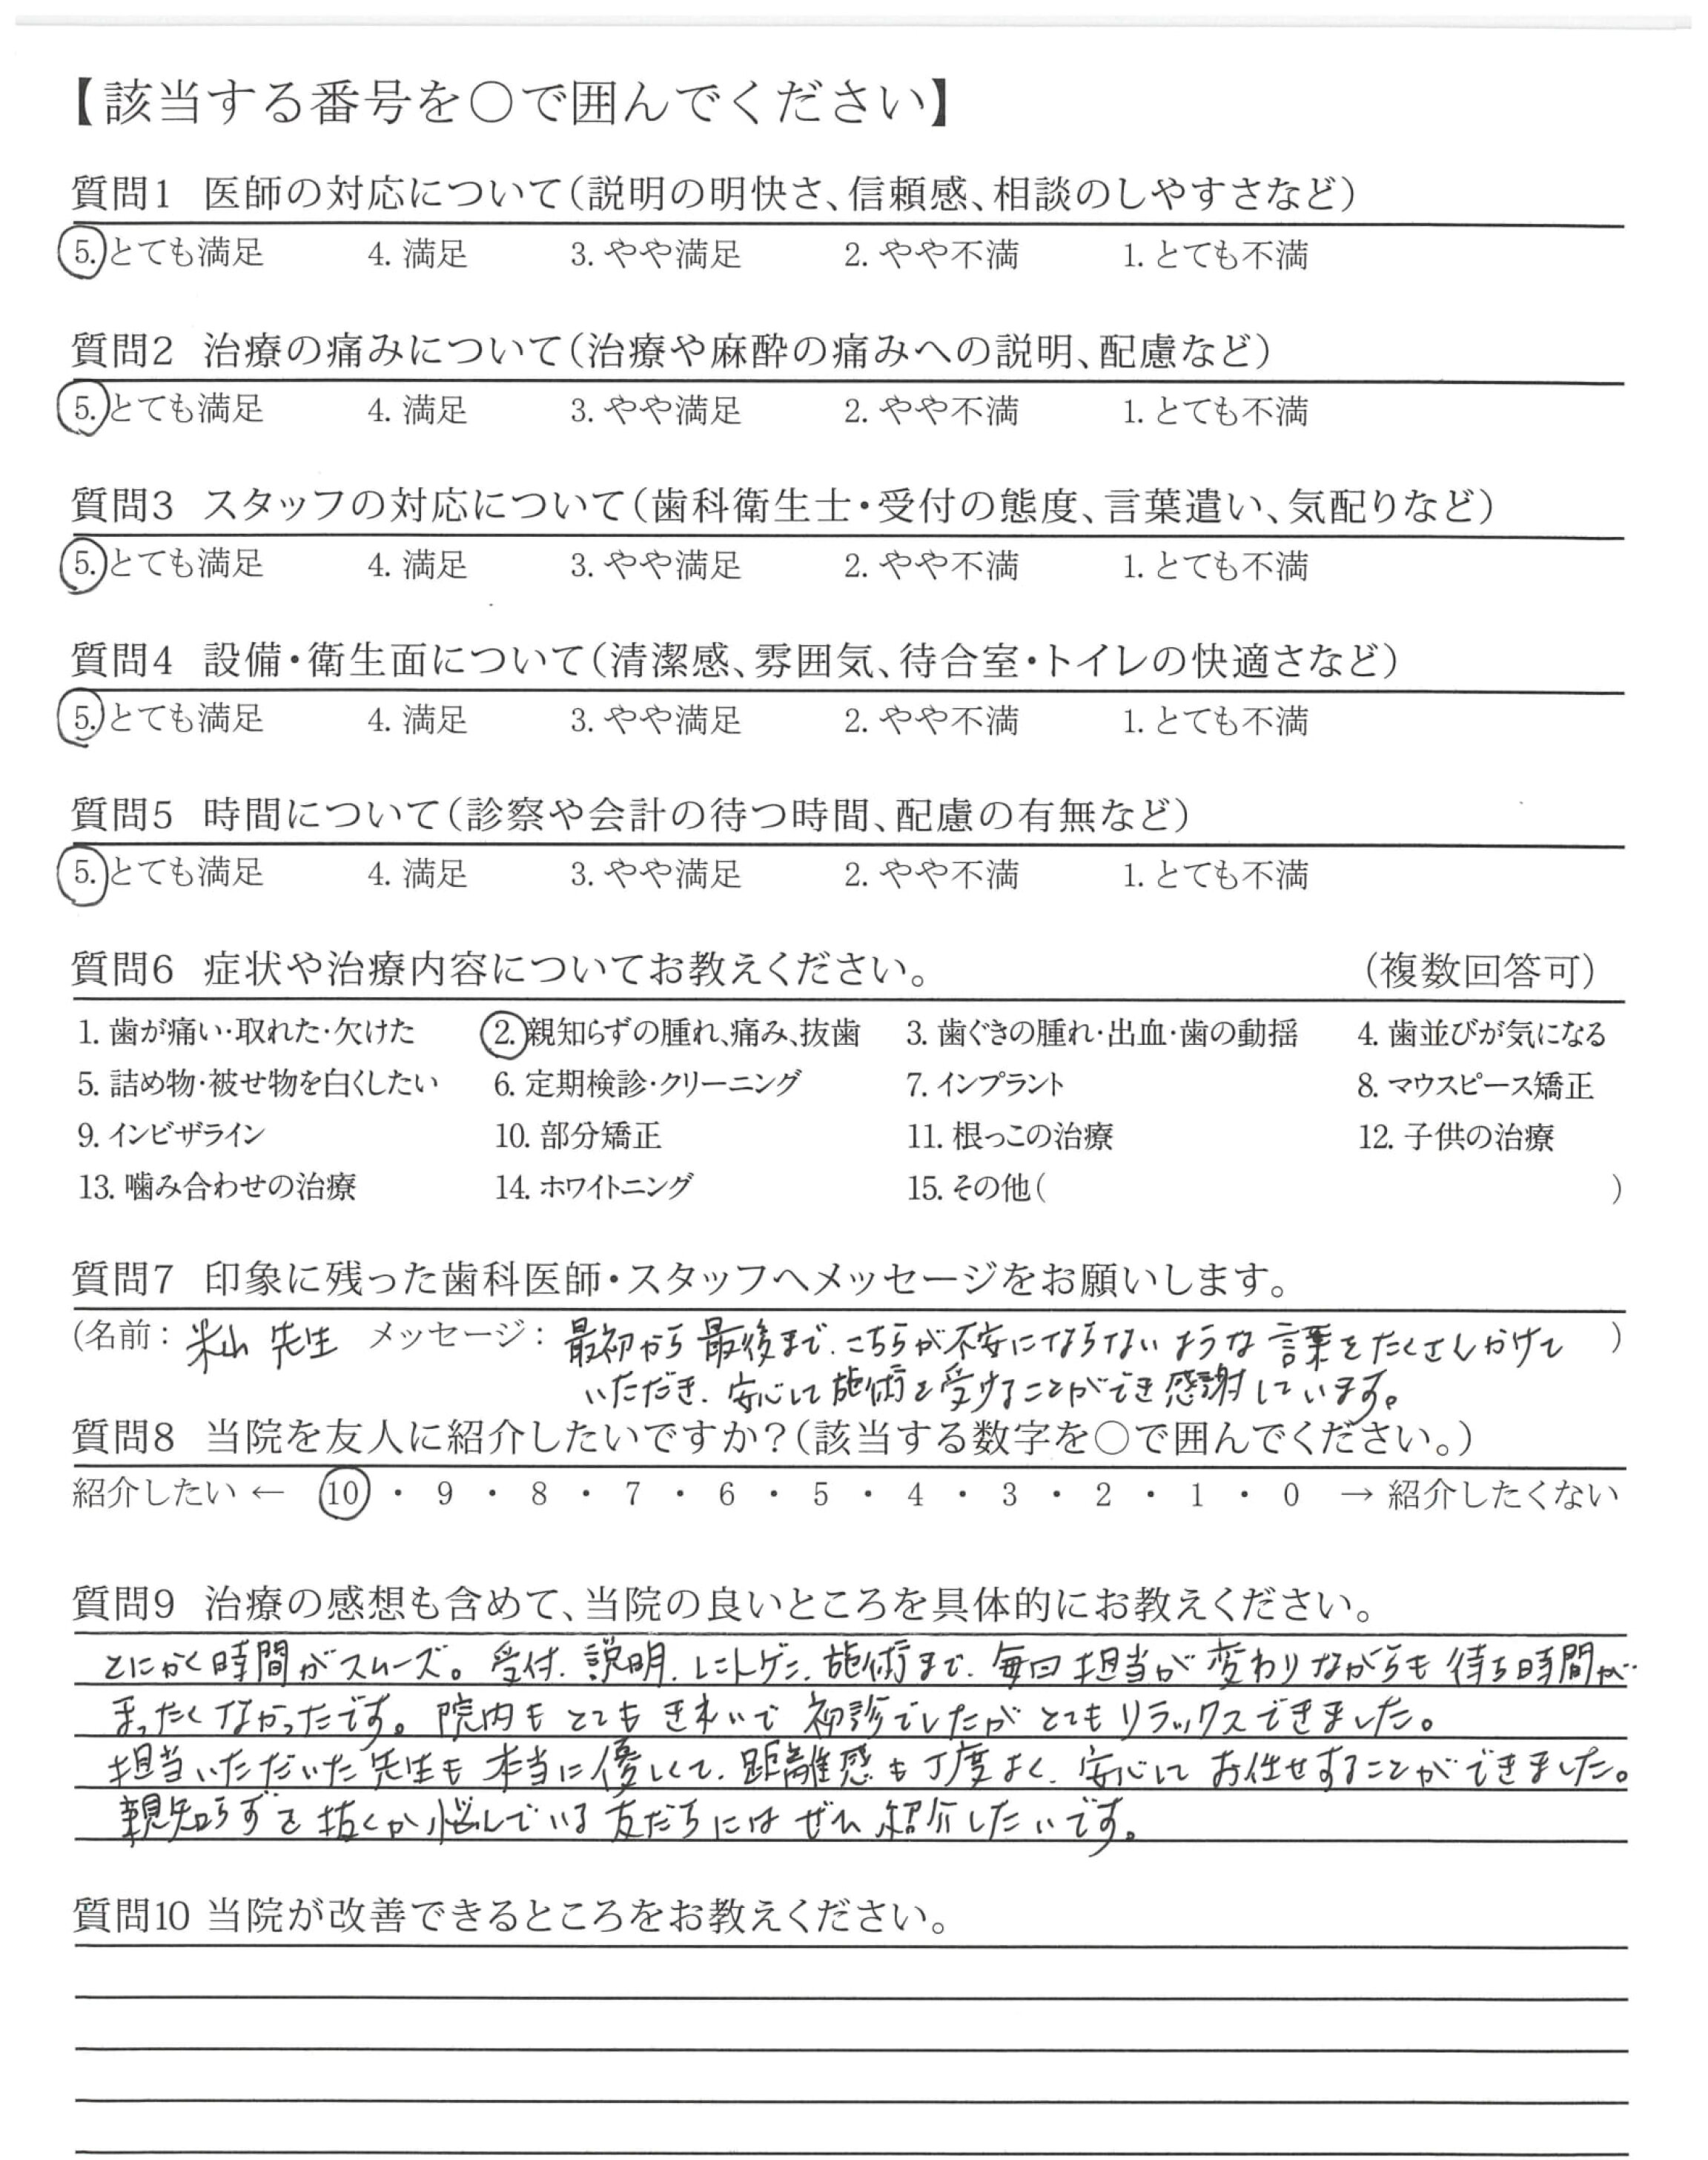 【該当する番号を○で囲んでください】
質問1 医師の対応について(説明の明快さ、信頼感、相談のしやすさなど)
5.とても満足 4. 満足 3. やや満足 2. やや不満 1. とても不満
質問2 治療の痛みについて(治療や麻酔の痛みへの説明、配慮など)
5.とても満足 4. 満足 3. やや満足 2. やや不満 1. とても不満
質問3 スタッフの対応について(歯科衛生士・受付の態度、言葉遣い、気配りなど)
5.とても満足 4. 満足 3. やや満足 2. やや不満 1. とても不満
質問4 設備・衛生面について(清潔感、雰囲気、待合室・トイレの快適さなど)
5.とても満足 4. 満足 3. やや満足 2. やや不満 1. とても不満
質問5 時間について(診察や会計の待つ時間、配慮の有無など)
5.とても満足 4. 満足 3. やや満足 2. やや不満 1. とても不満
質問6 症状や治療内容についてお教えください。 (複数回答可)
1. 歯が痛い・取れた・欠けた 2.親知らずの腫れ、痛み、抜歯 3. 歯ぐきの腫れ・出血・歯の動揺 4. 歯並びが気になる
5. 詰め物・被せ物を白くしたい 6. 定期検診・クリーニング 7. インプラント 8. マウスピース矯正
9. インビザライン 10. 部分矯正 11. 根っこの治療 12. 子供の治療
13. 噛み合わせの治療 14. ホワイトニング 15. その他( )
質問7 印象に残った歯科医師・スタッフへメッセージをお願いします。
(名前: 米山 先生 メッセージ: 最初から最後まで、こちらが不安にならないような言葉をたくさんかけて )
いただき、安心して施術を受けることができ感謝しています。
質問8 当院を友人に紹介したいですか?(該当する数字を○で囲んでください。)
紹介したい ← 10 ・ 9 ・ 8 ・ 7 ・ 6 ・ 5 ・ 4 ・ 3 ・ 2 ・ 1 ・ 0 → 紹介したくない
質問9 治療の感想も含めて、当院の良いところを具体的にお教えください。
とにかく時間がスムーズ。受付、説明、レントゲン、施術まで、毎回担当が変わりながらも待ち時間が
まったくなかったです。院内もとてもきれいで初診でしたがとてもリラックスできました。
担当いただいた先生も本当に優しくて、距離感も丁度よく、安心してお任せすることができました。
親知らずを抜くか悩んでいる友だちにはぜひ紹介したいです。
質問10 当院が改善できるところをお教えください。